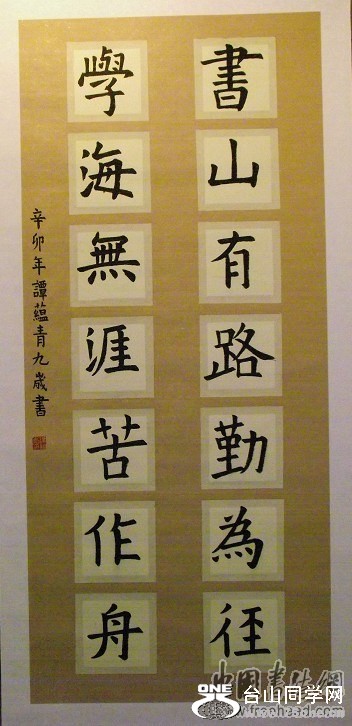 書山有路勤為径
學海無涯苦作舟
辛卯年譚蘊青九歲書
中国书法網
ONE
台山同学网